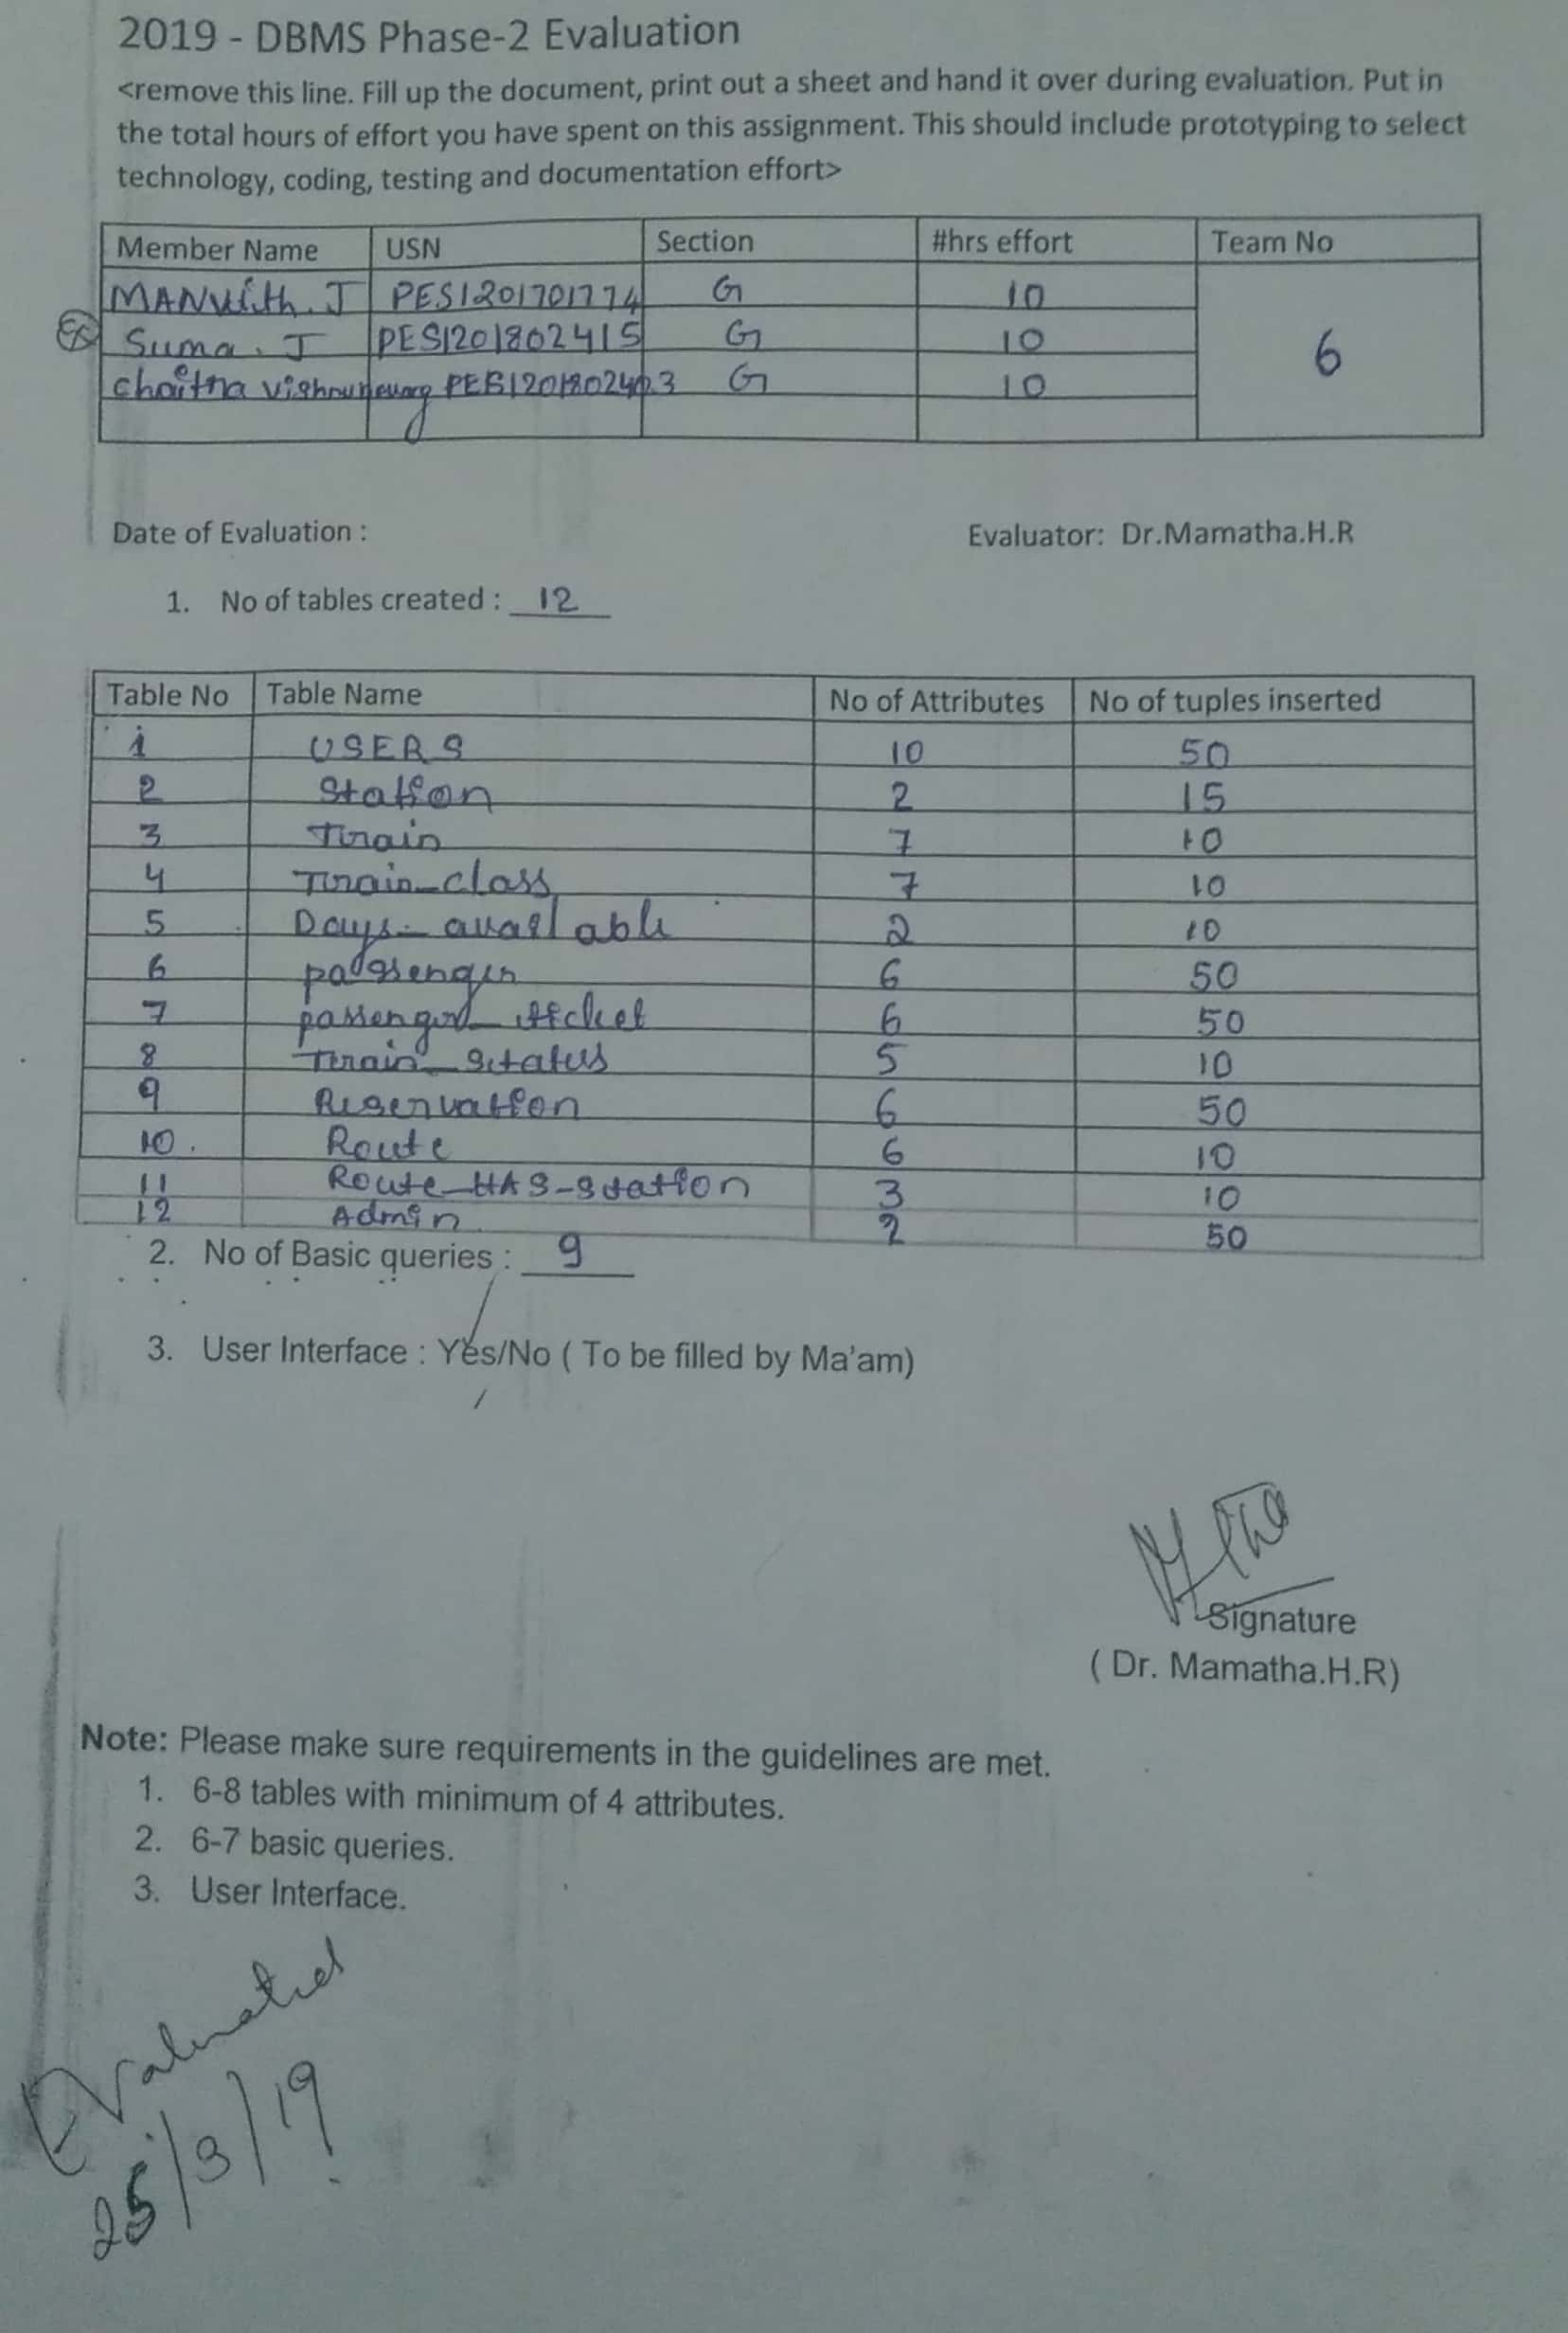 2019 - DBMS Phase-2 Evaluation
<remove this line. Fill up the document, print out a sheet and hand it over during evaluation. Put in
the total hours of effort you have spent on this assignment. This should include prototyping to select
technology, coding, testing and documentation effort>
Member Name USN Section #hrs effort Team No
MANvith. J PES1201701774 G 10
Suma. J PES1201802415 G 10 6
Chaitna PES1201802403 G 10
Date of Evaluation : Evaluator: Dr.Mamatha.H.R
1. No of tables created : 12
Table No Table Name No of Attributes No of tuples inserted
1 USERS 10 50
2 Station 2 15
3 Train 7 10
4 Train_class 7 10
5 Days_available 2 10
6 passenger 6 50
7 passenger_ticket 6 50
8 Train_Status 5 10
9 Reservation 6 50
10. Route 6 10
11 Route_HAS_Station 3 10
12 Admin 2 50
2. No of Basic queries : 9
3. User Interface : Yes/No ( To be filled by Ma'am)
Signature
( Dr. Mamatha.H.R)
Note: Please make sure requirements in the guidelines are met.
1. 6-8 tables with minimum of 4 attributes.
2. 6-7 basic queries.
3. User Interface.
Evaluated
25/3/19